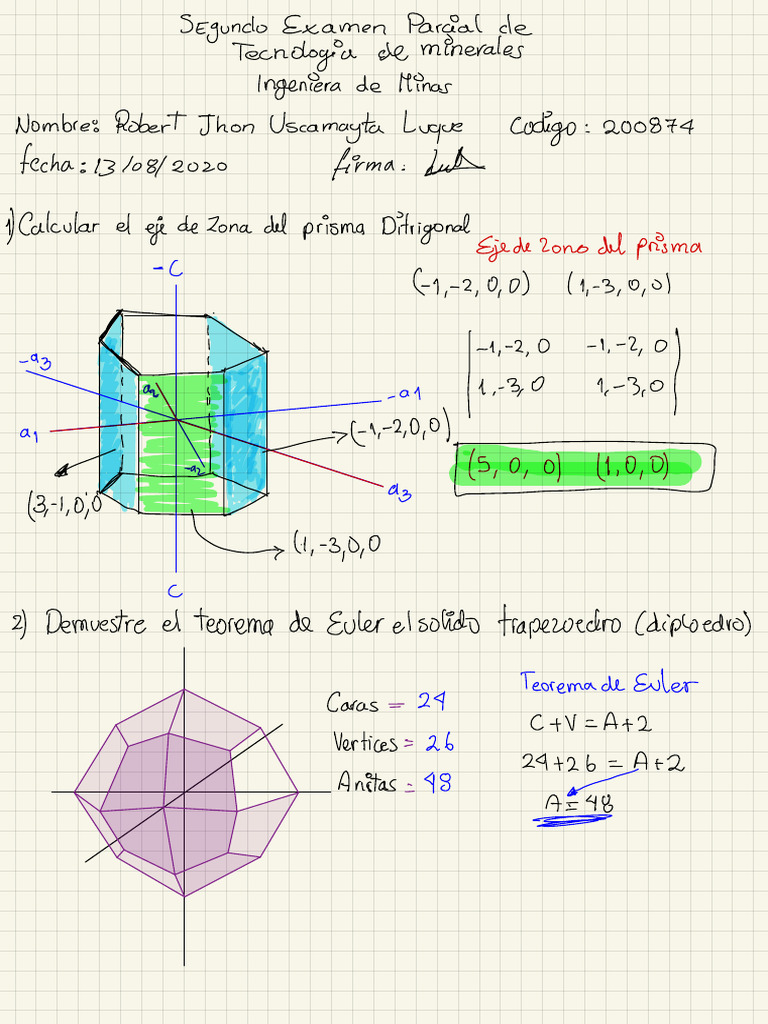 Segundo Examen Parcial de
Tecnologia de minerales
Ingeniera de Minas
Nombre: Robert Jhon Uscamayta Luque Codigo: 200874
fecha: 13/08/2020 firma:
1) Calcular el eje de zona del prisma Ditrigonal
Eje de Zona del prisma
(-1,-2,0,0) (1,-3,0,0)
-1,-2,0 -1,-2,0
1,-3,0 1,-3,0
(5, 0, 0) (1,0,0)
-C
-a3
a2
-a1
a1
(-1,-2,0,0)
-a2
a3
(3,-1,0,0
(1,-3,0,0
C
2) Demuestre el teorema de Euler el solido trapezoedro (diploedro)
Caras = 24
Vertices = 26
Aristas = 48
Teorema de Euler
C+V=A+2
24+26 = A+2
A=48